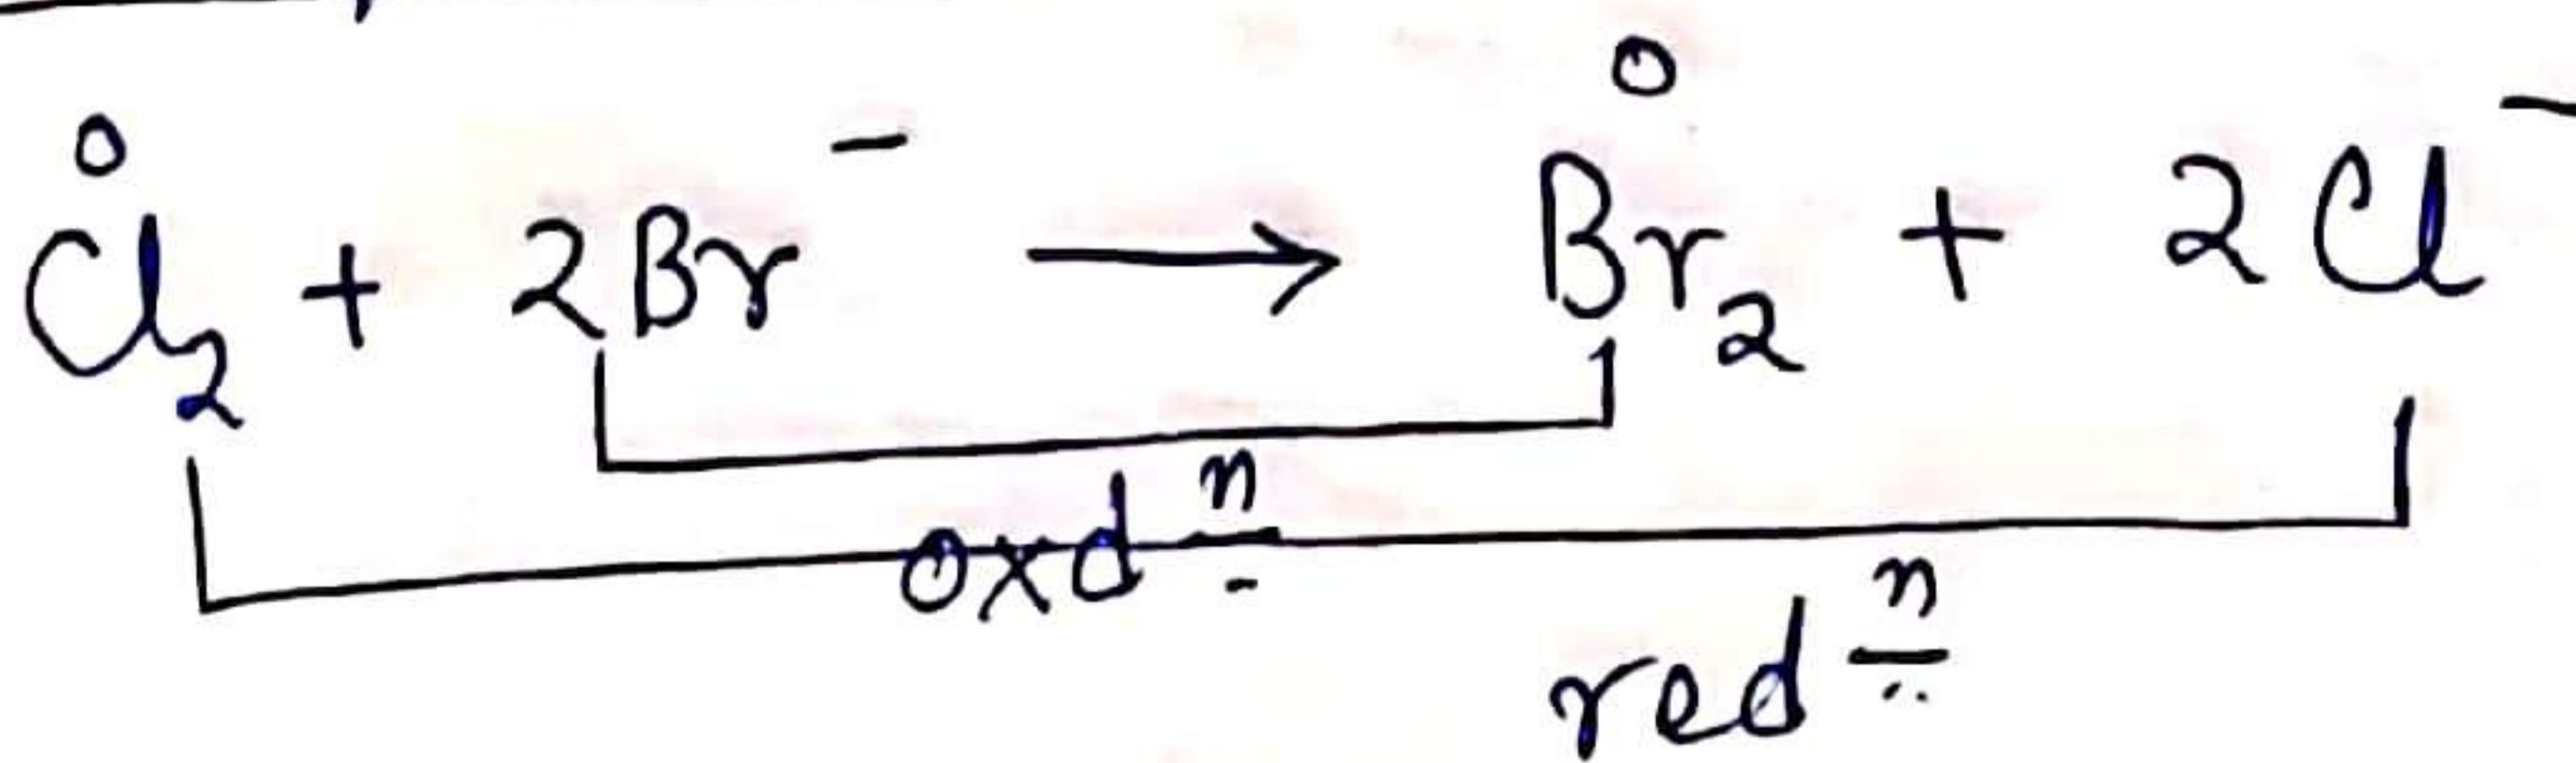 0 0
Cl₂ + 2Br⁻ → Br₂ + 2Cl⁻
oxdⁿ
redⁿ